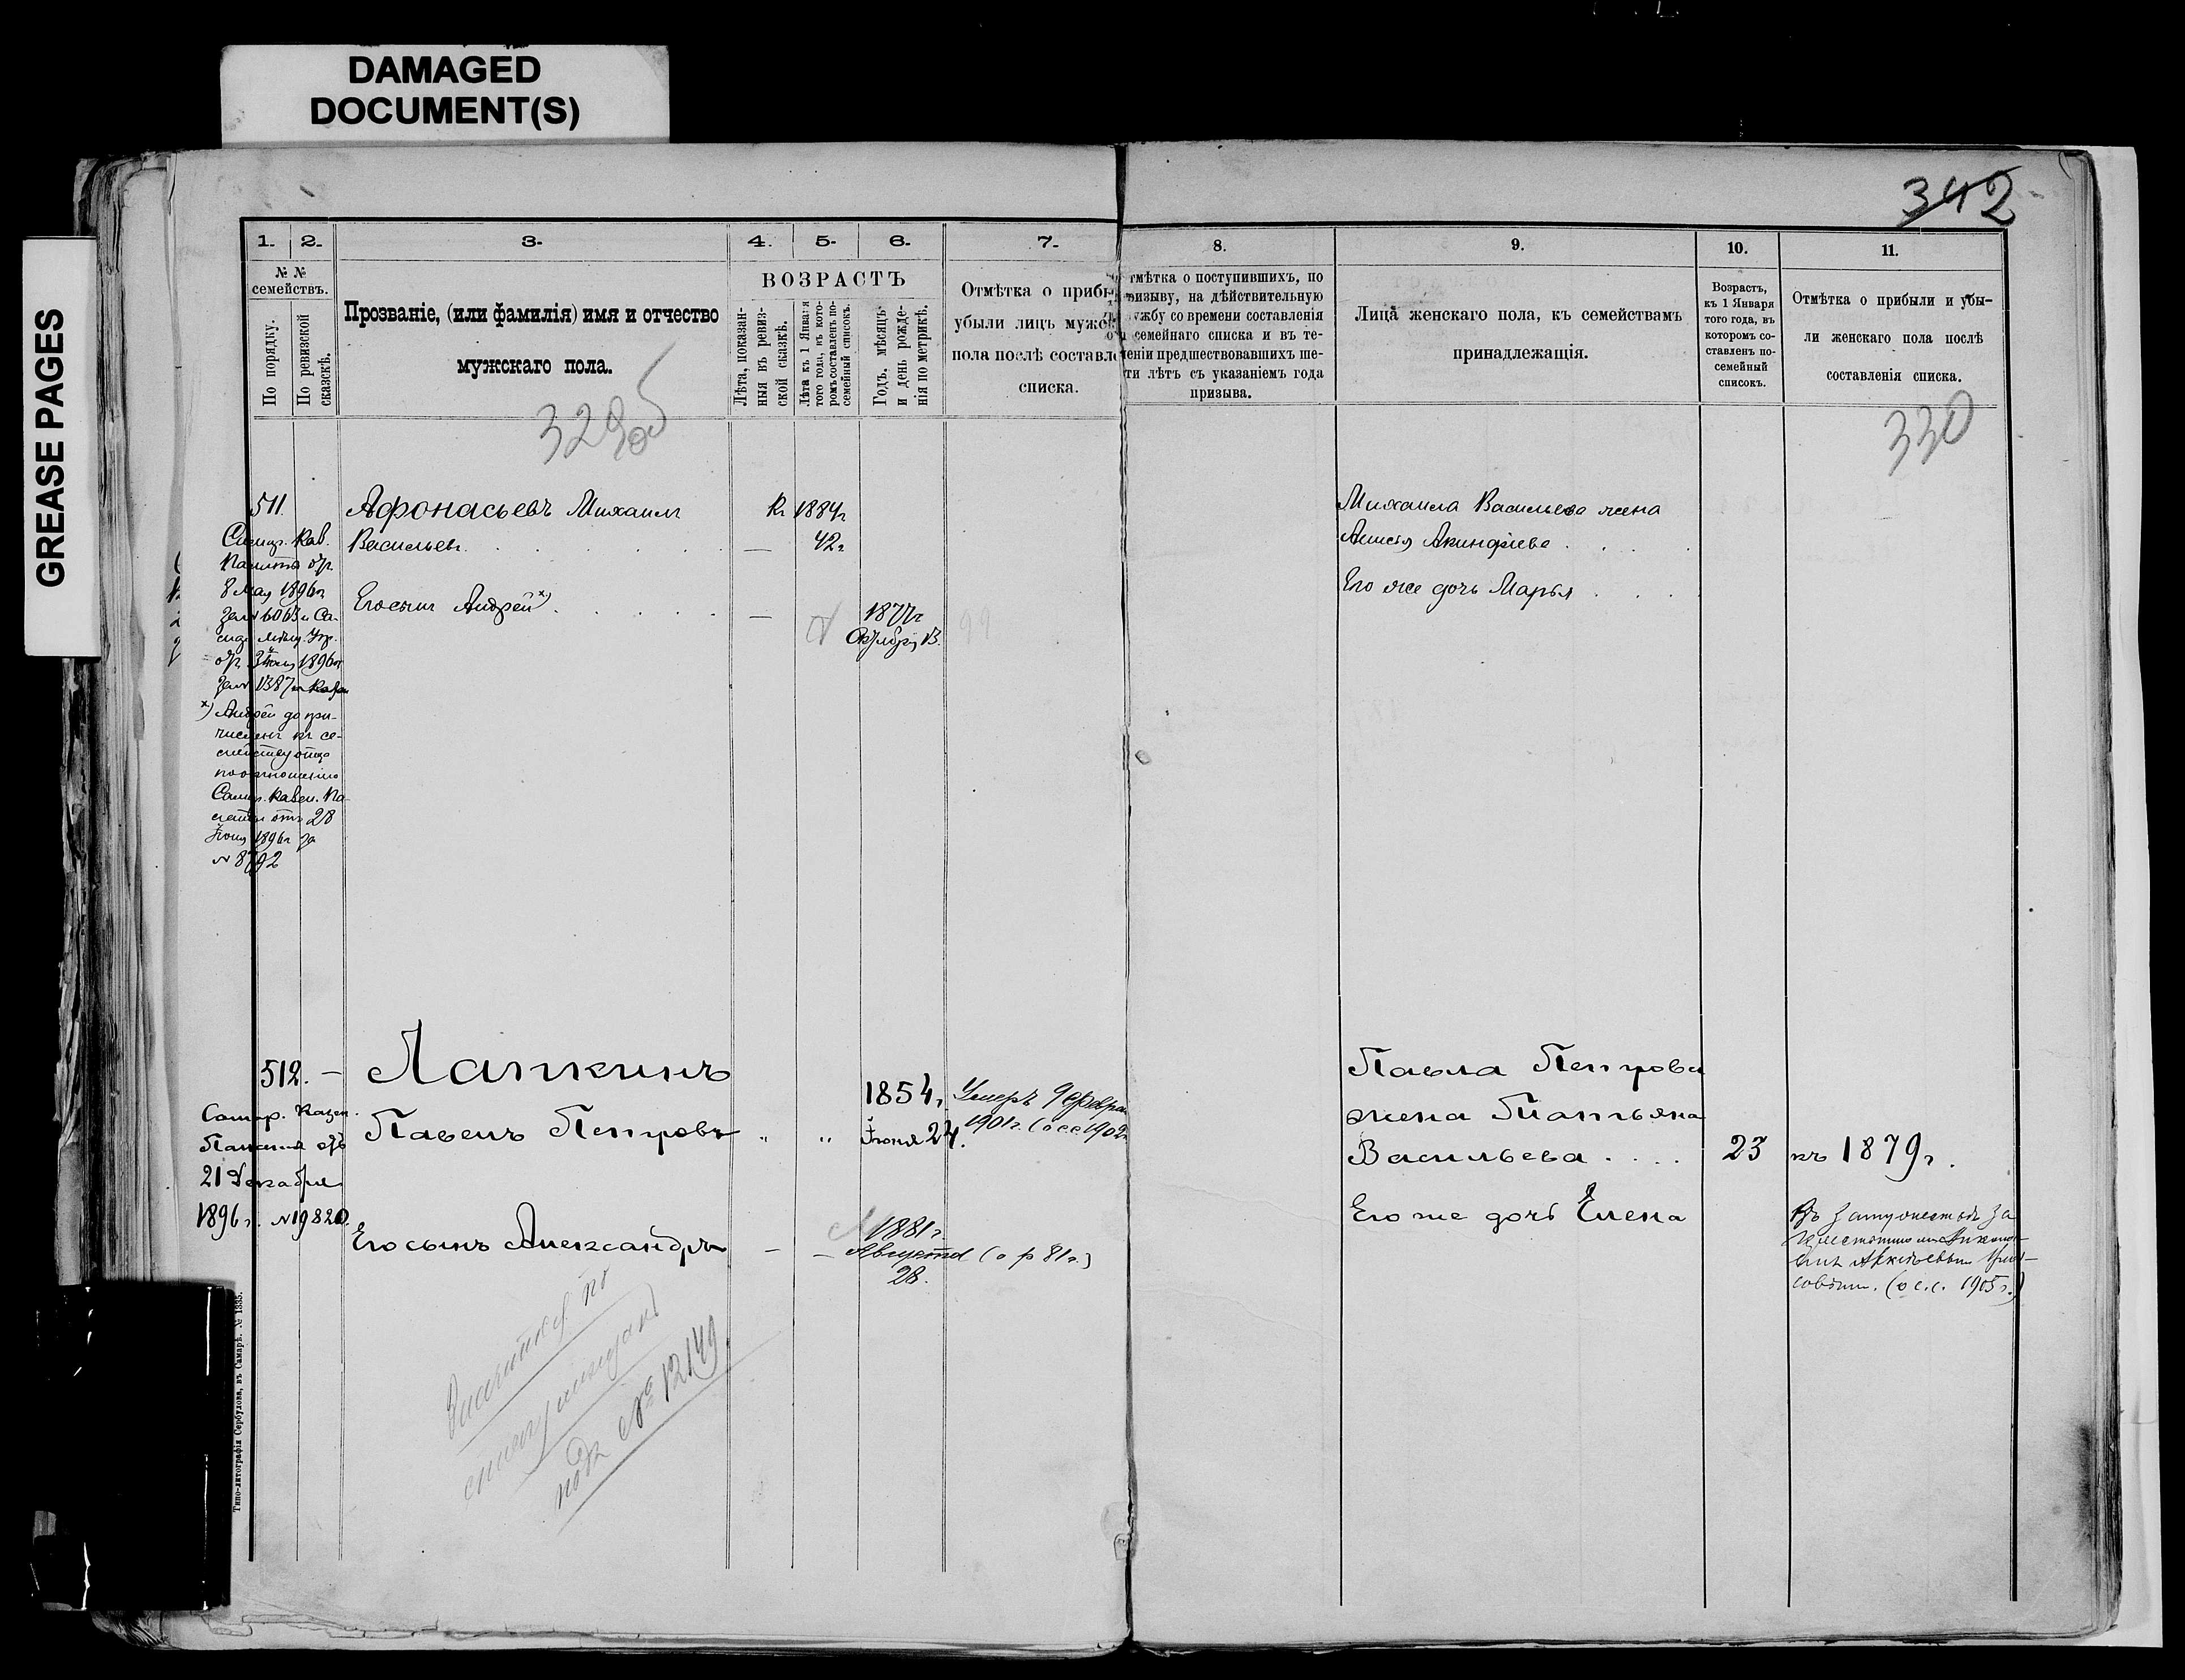 DAMAGED
DOCUMENT(S)
GREASE PAGES
342
1. 2. 3. 4. 5. 6. 7. 8. 9. 10. 11.
№ №
семействъ.
По порядку.
По ревизской
сказкѣ.
Прозваніе, (или фамилія) имя и отчество
мужскаго пола.
ВОЗРАСТЪ
Лѣта, показан-
ныя въ ревиз-
ской сказкѣ.
Лѣта къ 1 Января
того года, въ кото-
ромъ составленъ по-
семейный списокъ.
Годъ, мѣсяцъ
и день рожде-
нія по метрикѣ.
Отмѣтка о прибы
убыли лицъ мужск
пола послѣ составле
списка.
тмѣтка о поступившихъ, по
ризыву, на дѣйствительную
ужбу со времени составленія
семейнаго списка и въ те-
ченіи предшествовавшихъ ше-
ти лѣтъ съ указаніемъ года
призыва.
Лица женскаго пола, къ семействамъ
принадлежащія.
Возрастъ,
къ 1 Января
того года, въ
которомъ со-
ставленъ по-
семейный
списокъ.
Отмѣтка о прибыли и убы-
ли женскаго пола послѣ
составленія списка.
329об
330
511.
Афонасьевъ Михаилъ
Васильевъ
Къ 1884г
42г
Егосынъ Андрей х)
1877г
Октября 13.
99
Самар. Каз.
Палата от
8 мая 1896г
за № 6063 и Са-
мещ. Упр.
от 3 Іюня 1896г
за № 1387
х) Андрей до при-
численъ къ се-
мейству отца
по отношенію
Самар. Казен. Па-
латы отъ 28
Іюня 1896г за
№ 8792
Михаила Васильева жена
Анисья Акинфіева
Его же дочь Марья
512. — Лапкинъ
Павелъ Петровъ
„ „
1854г.
Іюня 24.
Умеръ 9 Февра
1901г. (о с.с. 1902г
Самар. Казен.
Палата отъ
21 Декабря
1896г. № 19820.
Егосынъ Александръ
1881г
Августа (о р 81г.)
28.
Павла Петрова
жена Татьяна
Васильева
23
къ 1879г.
Его же дочь Елена
Въ замужествѣ за
(о с.с. 1905г.)
подъ № 12149
Типо-литографія Сербулова, въ Самарѣ. № 1335.